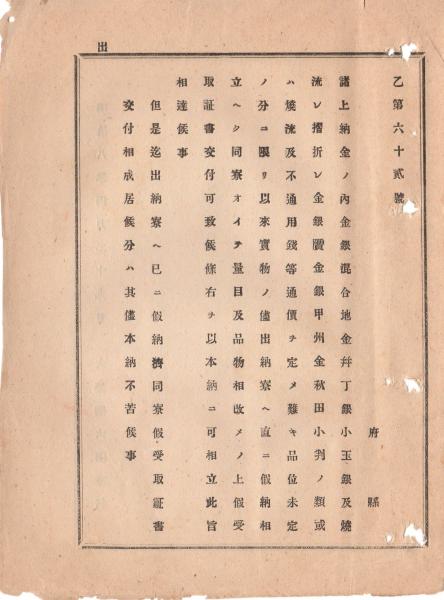 出
乙第六十貳號
府縣
諸上納金ノ內金銀混合地金幷丁銀小玉銀及燒
流レ摺折レ金銀贋金銀甲州金秋田小判ノ類或
ハ燒流及不通用錢等通價ヲ定メ難キ品位未定
ノ分ニ限リ以來實物ノ儘出納寮ヘ直ニ假納相
立ヘク同寮オイテ量目及品物相改メノ上假受
取証書交付可致候條右ヲ以本納ニ可相立此旨
相達候事
但是迄出納寮ヘ已ニ假納濟同寮假受取証書
交付相成居候分ハ其儘本納不苦候事